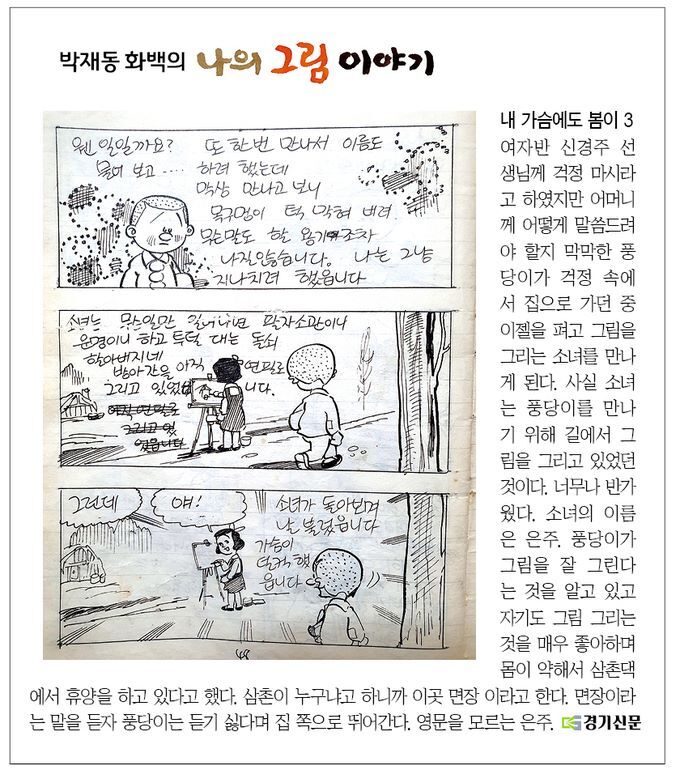 박재동 화백의 나의 그림 이야기
웬 일일까요? 또 한번 만나서 이름도
물어 보고···· 하려 했는데
막상 만나고 보니
목구멍이 턱 막혀 버려
무슨말도 할 용기조차
나질않습니다. 나는 그냥
지나치려 했읍니다
소녀는 무슨일만 일어나면 팔자소관이니
운명이니 하고 투덜 대는 돌쇠
할아버지네
방아간을 아직 연필로
그리고 있었습니다.
그런데
얘!
소녀가 돌아보며
날 불렀읍니다
가슴이
덜컥 했
읍니다
48
내 가슴에도 봄이 3
여자반 신경주 선
생님께 걱정 마시라
고 하였지만 어머니
께 어떻게 말씀드려
야 할지 막막한 풍
당이가 걱정 속에
서 집으로 가던 중
이젤을 펴고 그림을
그리는 소녀를 만나
게 된다. 사실 소녀
는 풍당이를 만나
기 위해 길에서 그
림을 그리고 있었던
것이다. 너무나 반가
웠다. 소녀의 이름
은 은주. 풍당이가
그림을 잘 그린다
는 것을 알고 있고
자기도 그림 그리는
것을 매우 좋아하며
몸이 약해서 삼촌댁
에서 휴양을 하고 있다고 했다. 삼촌이 누구냐고 하니까 이곳 면장 이라고 한다. 면장이라
는 말을 듣자 풍당이는 듣기 싫다며 집 쪽으로 뛰어간다. 영문을 모르는 은주. 경기신문